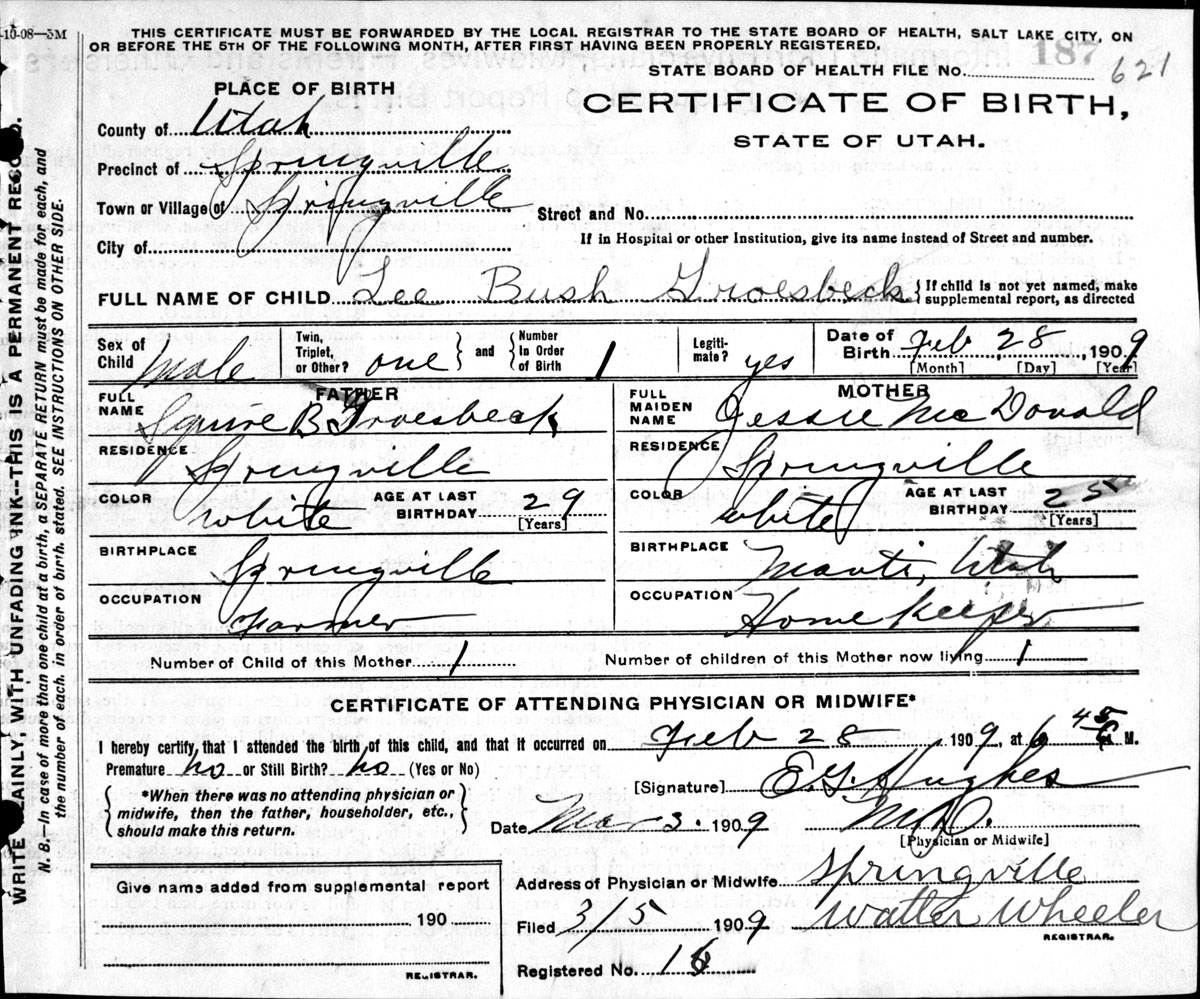 -10-08—5M
THIS CERTIFICATE MUST BE FORWARDED BY THE LOCAL REGISTRAR TO THE STATE BOARD OF HEALTH, SALT LAKE CITY, ON
OR BEFORE THE 5TH OF THE FOLLOWING MONTH, AFTER FIRST HAVING BEEN PROPERLY REGISTERED.
187
STATE BOARD OF HEALTH FILE No. 621
PLACE OF BIRTH
CERTIFICATE OF BIRTH,
STATE OF UTAH.
County of Utah
Precinct of Springville
Town or Village of Springville
Street and No.
City of
If in Hospital or other Institution, give its name instead of Street and number.
FULL NAME OF CHILD Lee Bush Groesbeck { If child is not yet named, make
supplemental report, as directed
Sex of Child Male
Twin, Triplet, or Other? one } and { Number In Order of Birth 1
Legiti-mate? yes
Date of Birth Feb 28, 1909
[Month] [Day] [Year]
FATHER
FULL NAME Squire B Groesbeck
RESIDENCE Springville
COLOR white AGE AT LAST BIRTHDAY 29
[Years]
BIRTHPLACE Springville
OCCUPATION Farmer
MOTHER
FULL MAIDEN NAME Jessie McDonald
RESIDENCE Springville
COLOR white AGE AT LAST BIRTHDAY 25
[Years]
BIRTHPLACE Manti, Utah
OCCUPATION Home Keeper
Number of Child of this Mother 1 Number of children of this Mother now living 1
CERTIFICATE OF ATTENDING PHYSICIAN OR MIDWIFE*
I hereby certify, that I attended the birth of this child, and that it occurred on Feb 28, 1909, at 6 45 M.
Premature no or Still Birth? no (Yes or No)
[Signature] E. G. Hughes
{ *When there was no attending physician or
midwife, then the father, householder, etc.,
should make this return. }
Date Mar 3. 1909 M.D.
[Physician or Midwife]
Give name added from supplemental report
190
REGISTRAR.
Address of Physician or Midwife Springville
Filed 3/5 1909 Walter Wheeler
REGISTRAR.
Registered No. 16
WRITE PLAINLY, WITH UNFADING INK—THIS IS A PERMANENT RECORD.
N. B.—In case of more than one child at a birth, a SEPARATE RETURN must be made for each, and
the number of each, in order of birth, stated. SEE INSTRUCTIONS ON OTHER SIDE.